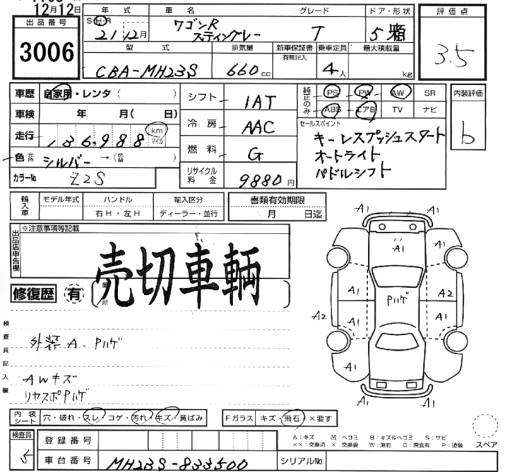 12月12日
出品番号
3006
年式 車名 グレード ドア・形状
S H R 21年12月 ワゴンR スティングレー T 5 箱
型式 排気量 新車保証書 有間記入 乗車定員 最大積載量
CBA-MH23S 660cc 4人 kg
評価点
3.5
車歴 自家用・レンタ( )
車検 年 月( )
走行 136,988 km マイル
色 シルバー →( 色)
カラーNo Z2S
シフト 1AT
冷房 AAC
燃料 G
リサイクル料金 9880円
純正のみ PS PW AW SR
ABS エアB TV ナビ
セールスポイント
キーレスプッシュスタート
オートライト
パドルシフト
内装評価
b
輸入車 モデル年式 ハンドル 輸入区分 書類有効期限
右H・左H ディーラー・並行 月 日迄
出品店申告欄 ※注意事項等記載
売切車輌
修復歴 有
検査員記入欄
外装A. Pハゲ
AWキズ
リヤスポPハゲ
A1 A1 A1
A1 A1
A2 Pハゲ A2
A1 A1
A1 A1
内装シート 穴・破れ・スレ・コゲ・汚れ・キズ・黄ばみ
Fガラス キズ・飛石・×要す
検査員
登録番号
車台番号 MH23S-833500
シリアルNo
A:キズ M:ヘコミ B:キズ&ヘコミ S:サビ
××:交換済 ×:要交換 W:波打 C:腐食有 P:塗装
スペア